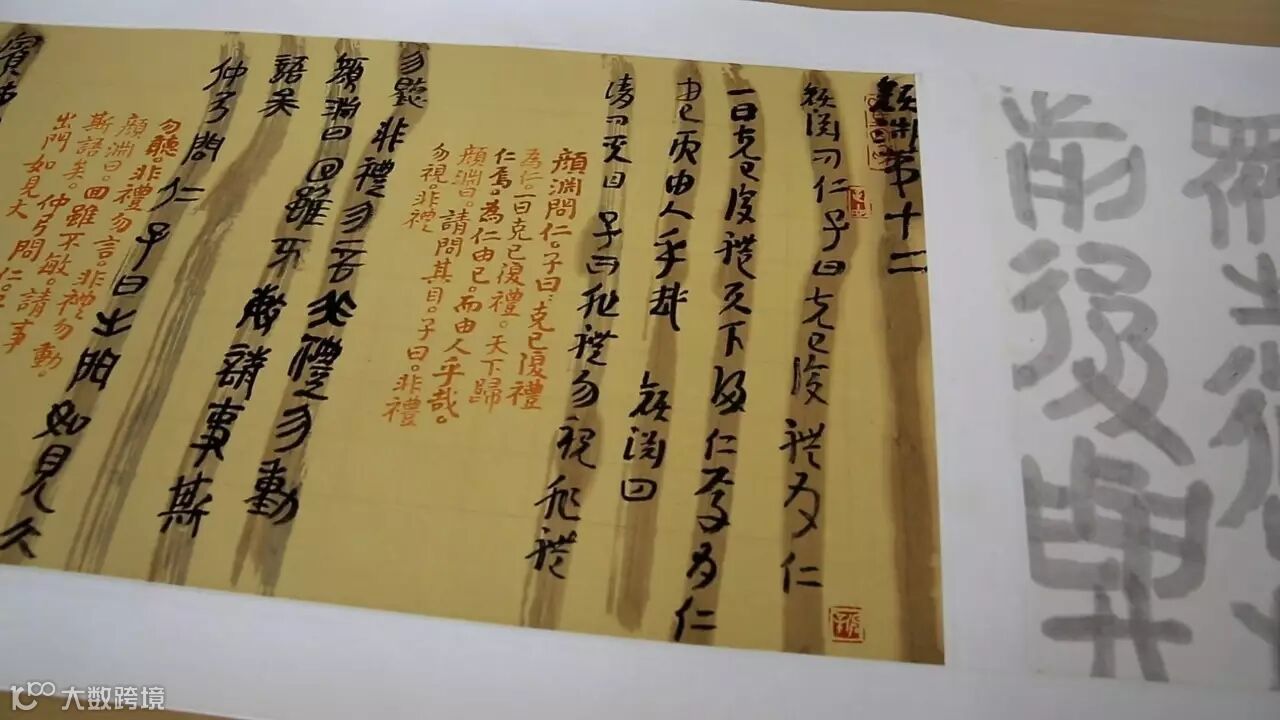 顏渊第十二
顏渊问仁子曰克己復禮为仁
一日克己復禮天下歸仁焉为仁
由己而由人乎哉 顏渊曰
请问其目 子曰非禮勿視非禮
顏淵問仁。子曰：克己復禮
為仁。一日克己復禮。天下歸
仁焉。為仁由己。而由人乎哉。
顏淵曰。請問其目。子曰。非禮
勿視。非禮
勿聽 非禮勿言非禮勿動
顏淵曰回雖不敏請事斯
語矣
仲弓問仁子曰出門如見大
勿聽。非禮勿言。非禮勿動。
顏淵曰。回雖不敏。請事
斯語矣。 仲弓問仁。子曰
出門如見大
賓
大数跨境